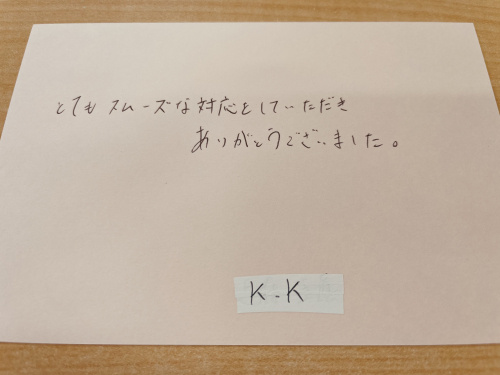 とてもスムーズな対応をしていただき
ありがとうございました。
K-K